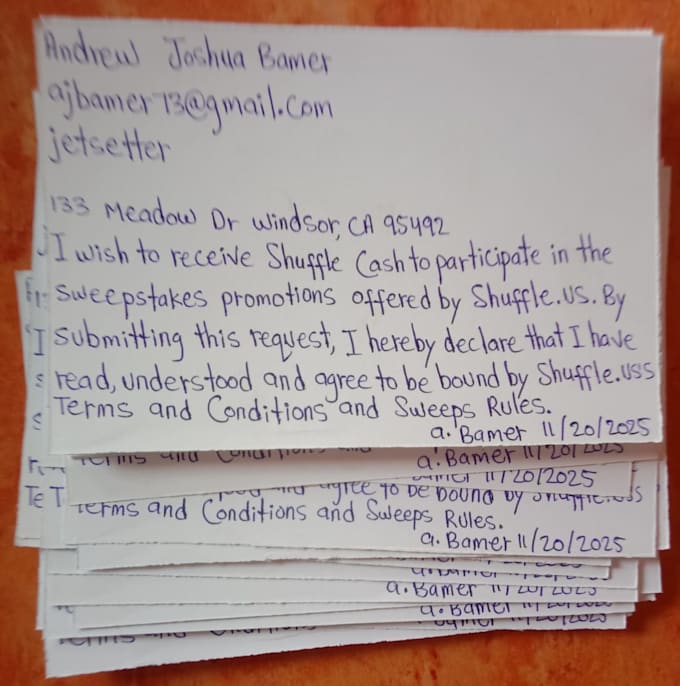 Andrew Joshua Bamer
ajbamer73@gmail.com
jetsetter
133 Meadow Dr Windsor, CA 95492
I wish to receive Shuffle Cash to participate in the
sweepstakes promotions offered by Shuffle.us. By
submitting this request, I hereby declare that I have
read, understood and agree to be bound by Shuffle.uss
Terms and Conditions and Sweeps Rules.
a. Bamer 11/20/2025
Terms and Conditions and
a. Bamer 11/20/2025
11/20/2025
agree to be bound by
Te
Terms and Conditions and Sweeps Rules.
a. Bamer 11/20/2025
a. Bamer 11/20/2025
a. Bamer
11/20/2025